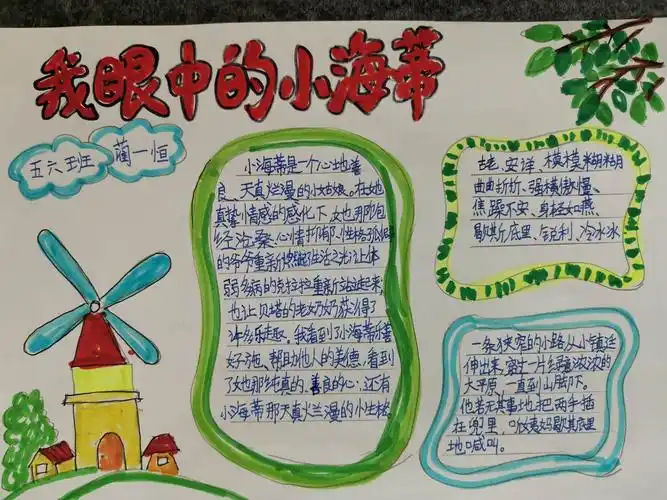 我眼中的小海蒂
五六班
蔺一恒
小海蒂是一个心地善
良、天真烂漫的小姑娘。在她
真挚情感的感化下,她那饱
经沧桑、心情抑郁、性格孤
的爷爷重新燃起生活之光让体
弱多病的克拉拉重新站起来;
也让贝塔的老奶奶获得了
许多乐趣。我看到了小海蒂善
好施、帮助他人的美德,看到
了她那纯真的、善良的心,还有
小海蒂那天真烂漫的小生
古老、安详、模模糊糊
曲曲折折、强横傲慢、
焦躁不安、身轻如燕、
歇斯底里、锐利、冷冰冰
一条狭窄的小路,从小镇延
伸出来,穿过一片绿意浓浓的
大平原,一直到山脚下。
他若无其事地把两手插
在兜里,
歇斯底里
地喊叫。